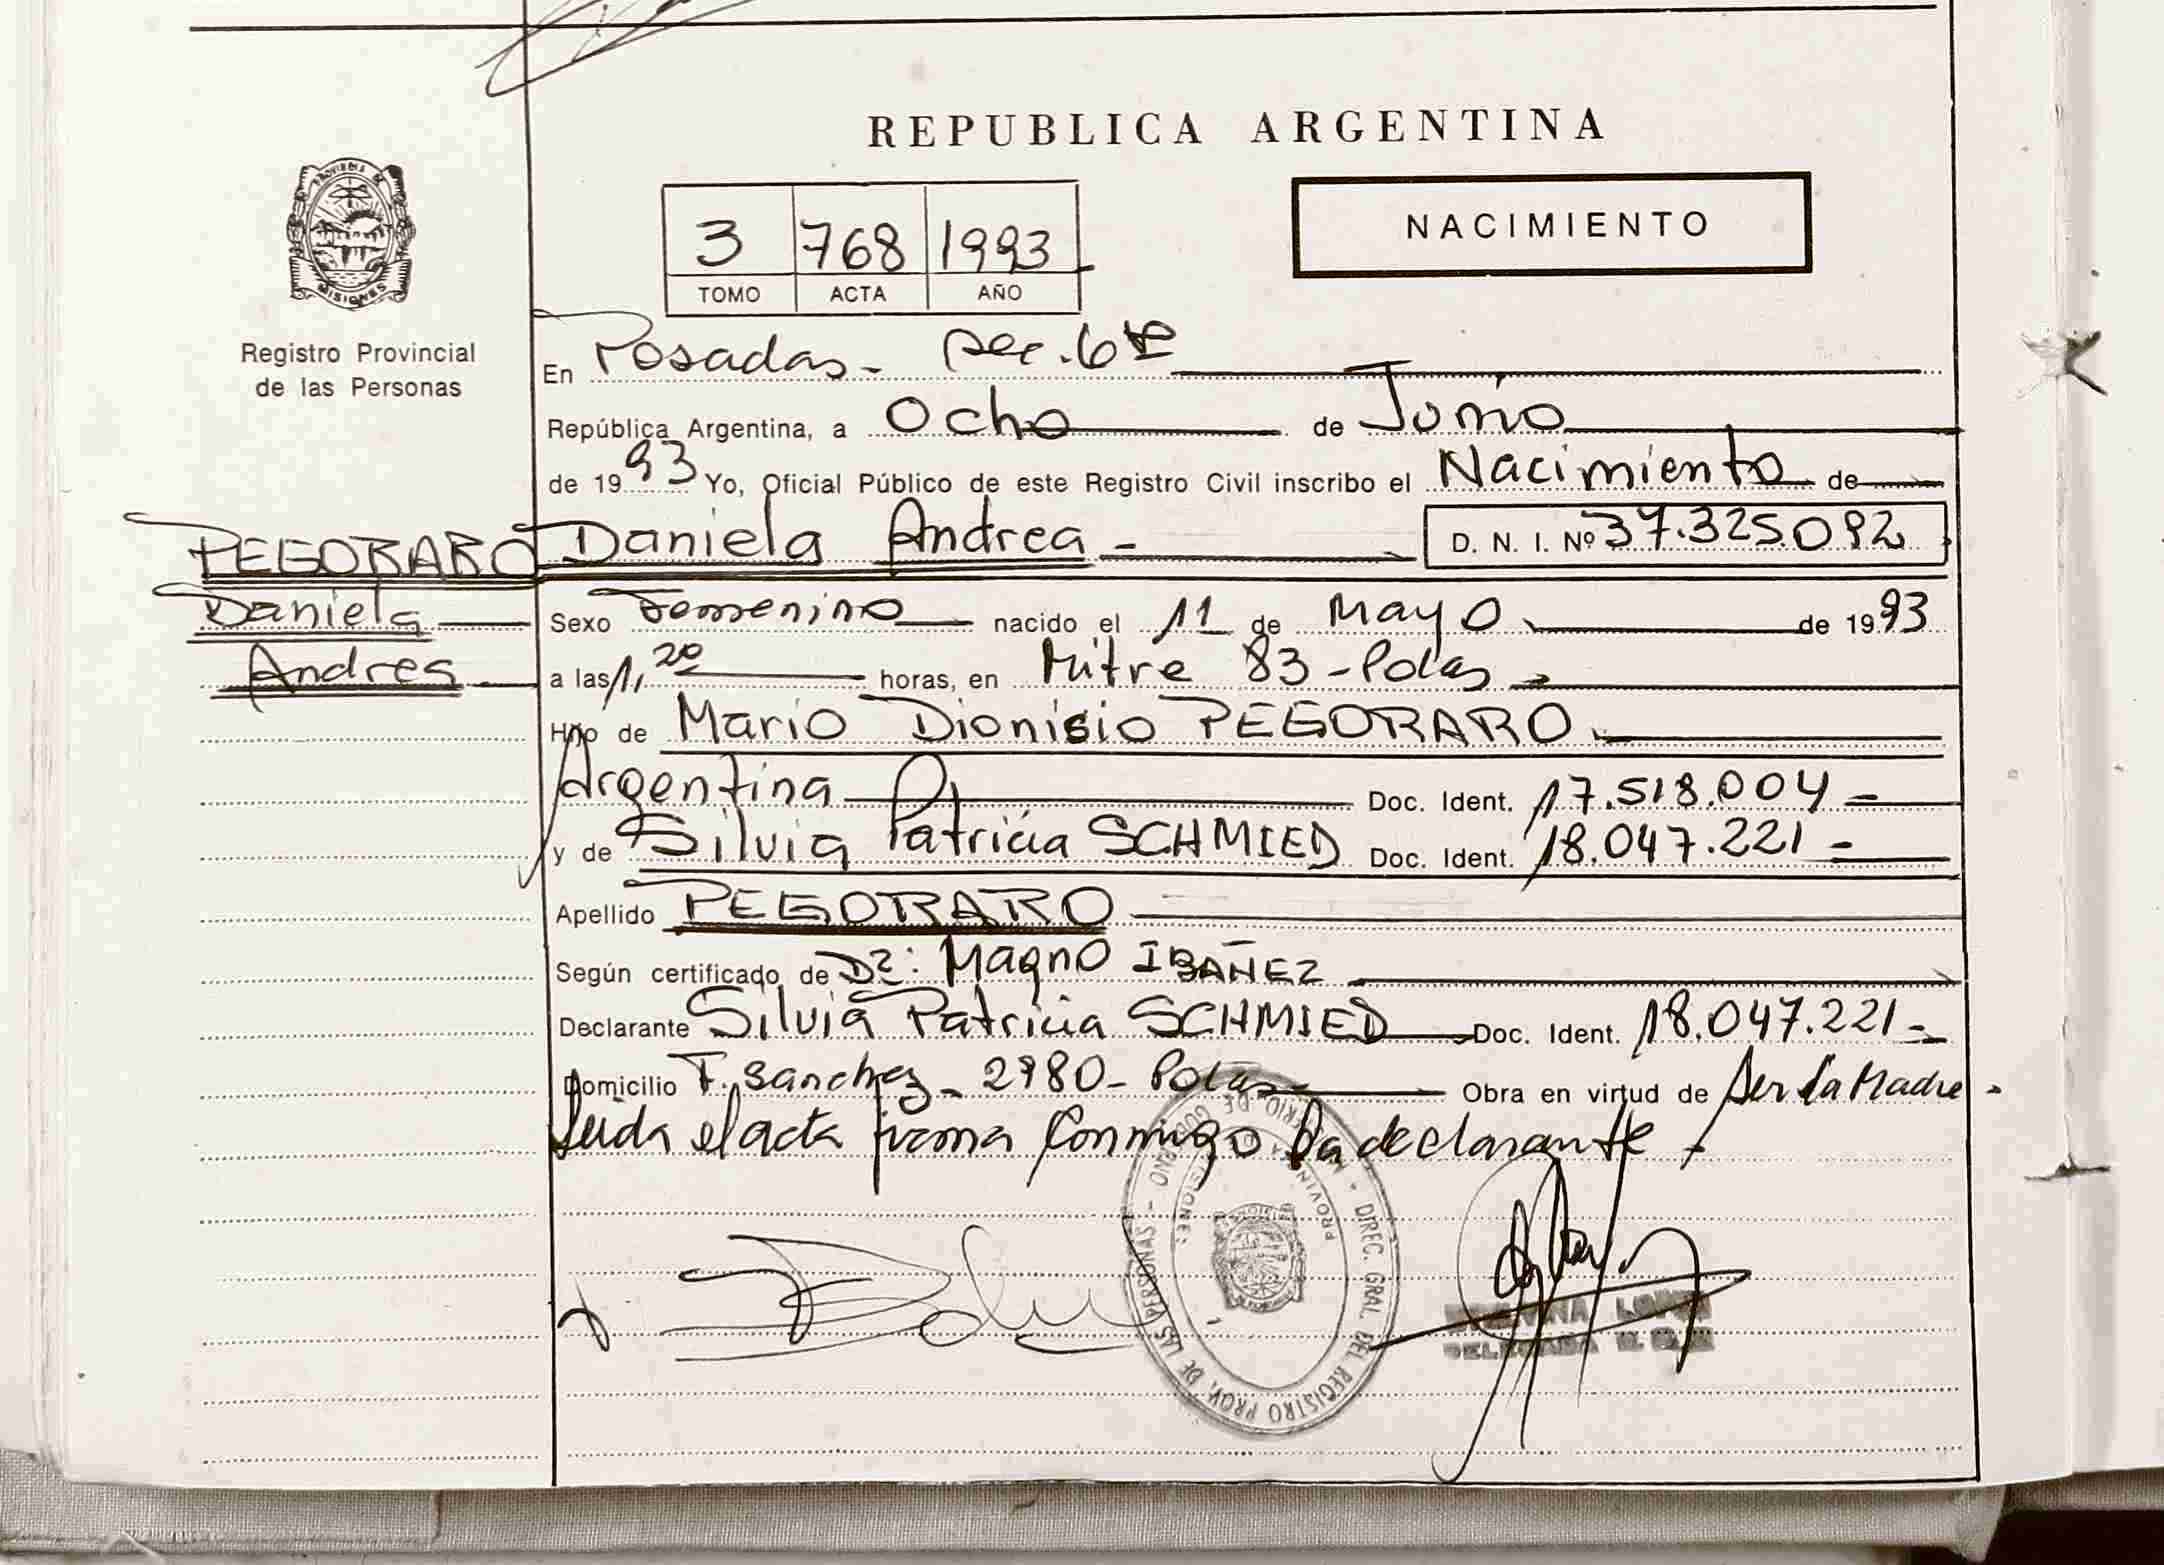 REPUBLICA ARGENTINA
NACIMIENTO
3 768 1993
TOMO ACTA AÑO
MISIONES
Registro Provincial
de las Personas
En Posadas - sec. 6ta
República Argentina, a Ocho de Junio
de 1993 Yo, Oficial Público de este Registro Civil inscribo el Nacimiento de
PEGORARO Daniela Andrea - D. N. I. Nº 37.325.092
Daniela
Andrea
Sexo Femenino nacido el 11 de Mayo de 1993
a las 1,20 horas, en Mitre 83 - Pdas
Hijo de Mario Dionisio PEGORARO
Argentina Doc. Ident. 17.518.004 -
y de Silvia Patricia SCHMIED Doc. Ident. 18.047.221 -
Apellido PEGORARO
Según certificado de Dr: Magno IBAÑEZ
Declarante Silvia Patricia SCHMIED Doc. Ident. 18.047.221 -
Domicilio F. Sanchez - 2980 - Pdas - Obra en virtud de Ser la Madre -
Leida el acta firma conmigo la declarante -
DIREC. GRAL. DEL REGISTRO PROV. DE LAS PERSONAS -
DELEGADA